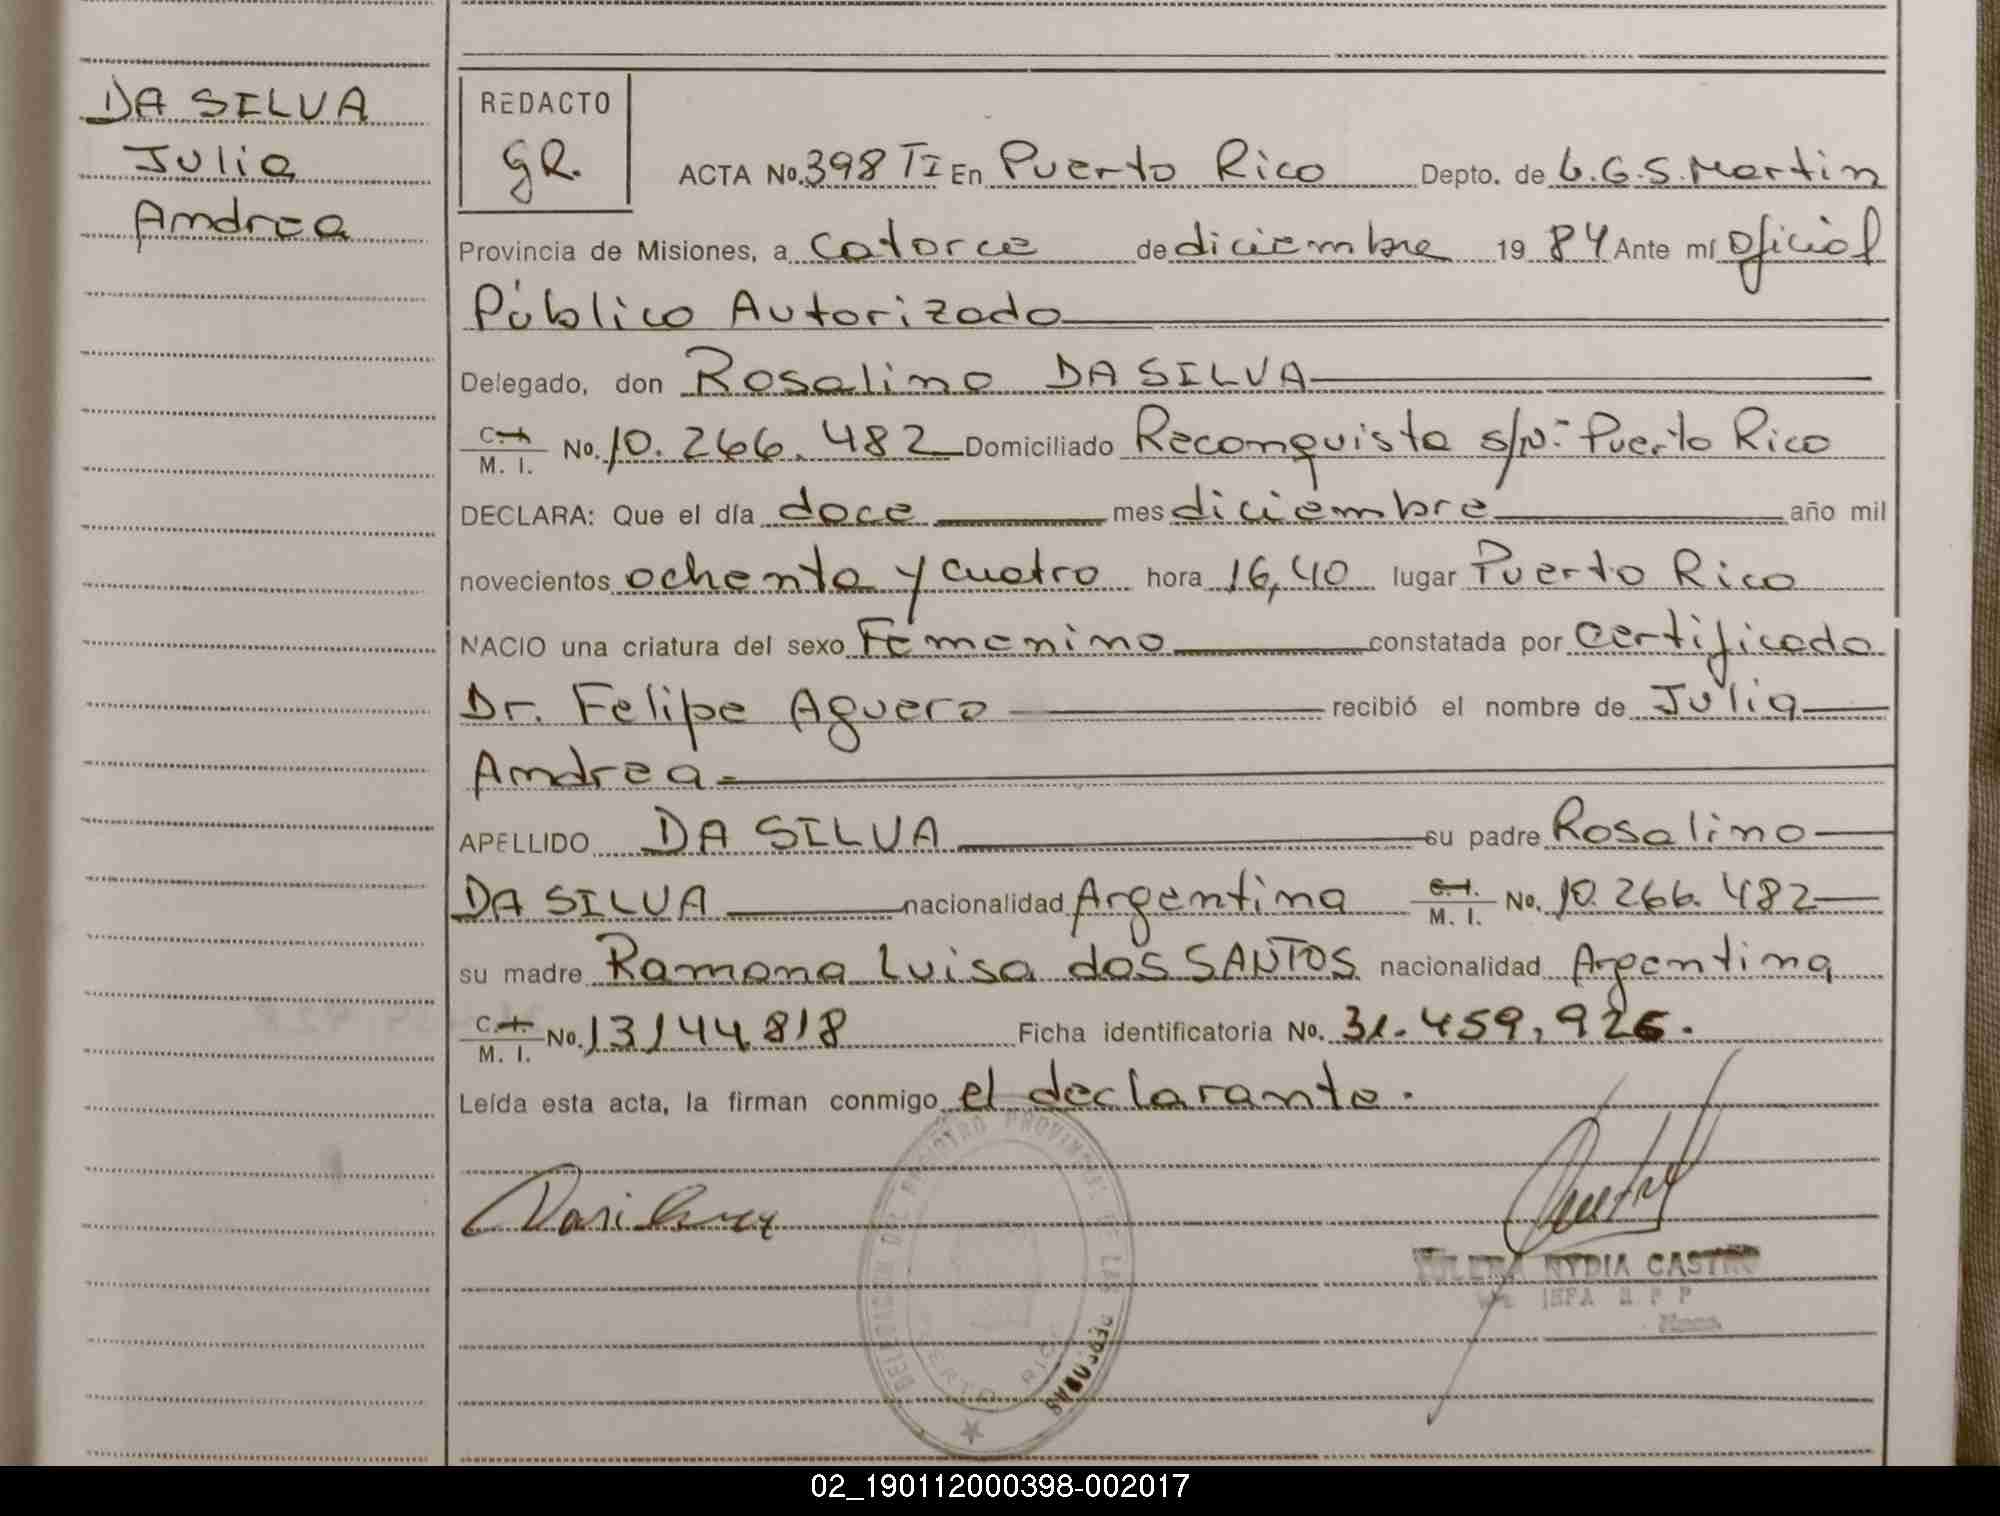 DA SILVA
Julia
Andrea
REDACTO
GR.
ACTA No. 398 TI En Puerto Rico Depto. de L.G.S. Martin
Provincia de Misiones, a catorce de diciembre 1984 Ante mí Oficial
Público Autorizado
Delegado, don Rosalino DA SILVA
C.I. M. I. No. 10.266.482 Domiciliado Reconquista s/Nº Puerto Rico
DECLARA: Que el día doce mes diciembre año mil
novecientos ochenta y cuatro hora 16,40 lugar Puerto Rico
NACIO una criatura del sexo Femenino constatada por certificado
Dr. Felipe Aguero recibió el nombre de Julia
Andrea
APELLIDO DA SILVA su padre Rosalino
DA SILVA nacionalidad Argentina C.I. M. I. No. 10.266.482
su madre Ramona Luisa dos SANTOS nacionalidad Argentina
C.I. M. I. No. 13144818 Ficha identificatoria No. 31.459,926.
Leída esta acta, la firman conmigo el declarante.
DELEGACION DEL REGISTRO PROVINCIAL DE LAS PERSONAS
PUERTO RICO
NYDIA CASTRO
02_190112000398-002017